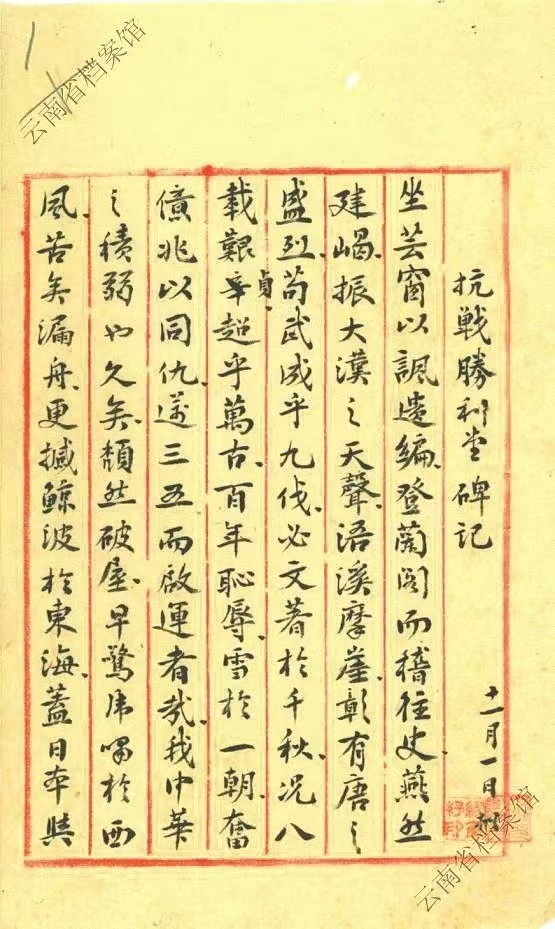 抗戰勝利堂碑記
十一月一日
坐芸窗以諷遺編、登蘭閣而稽往史、燕然
建碣、振大漢之天聲、浯溪摩崖、彰有唐之
盛烈、苟武成乎九伐、必文著於千秋、況八
載艱辛貞、超乎萬古、百年恥辱、雪於一朝、奮
億兆以同仇、邁三五而啟運者哉、我中華
之積弱也久矣、頹然破屋、早驚席嘯於西
風、苦矣漏舟、更撼鯨波於東海、蓋日本與
云南省档案馆
云南省档案馆
1